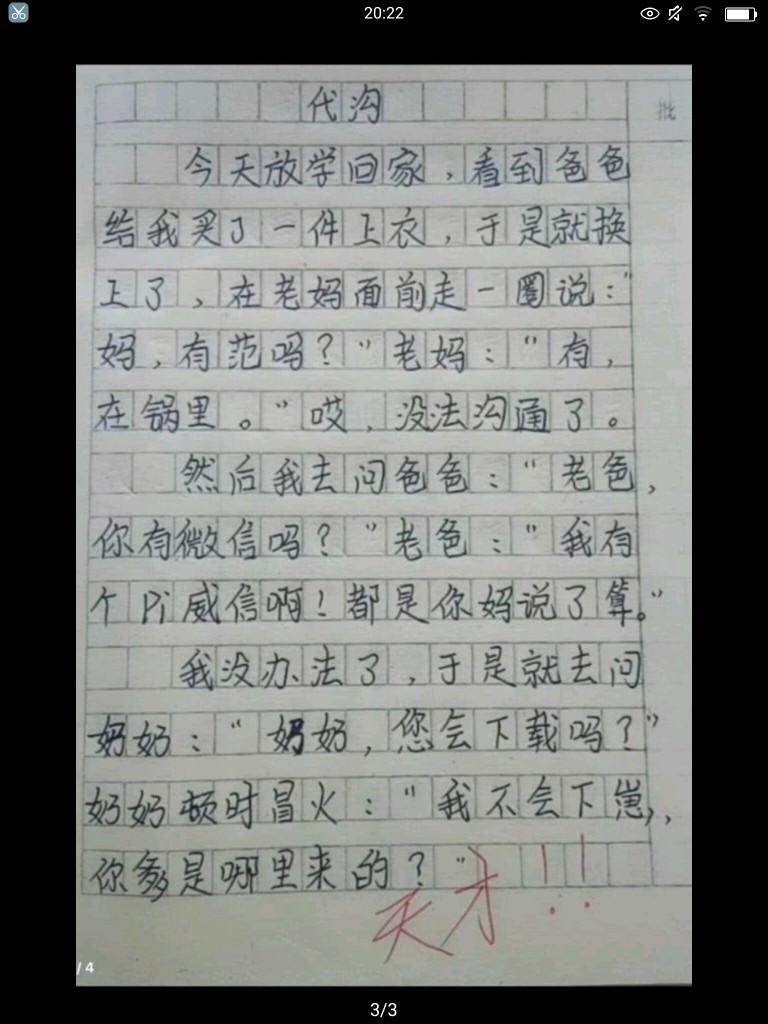 20:22
代沟
批
今天放学回家，看到爸爸
给我买了一件上衣，于是就换
上了，在老妈面前走一圈说："
妈，有范吗？"老妈："有，
在锅里。"哎，没法沟通了。
然后我去问爸爸："老爸，
你有微信吗？"老爸："我有
个Pi威信啊！都是你妈说了算。"
我没办法了，于是就去问
奶奶："奶奶，您会下载吗？"
奶奶顿时冒火："我不会下崽，
你爹是哪里来的？"
天才!!
/ 4
3/3